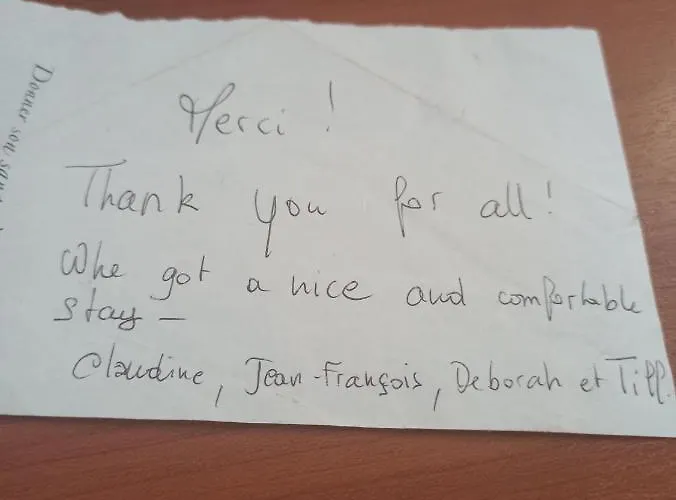 Merci !
Thank you for all !
Whe got a nice and comfortable
stay –
Claudine, Jean-François, Deborah et
Donner son